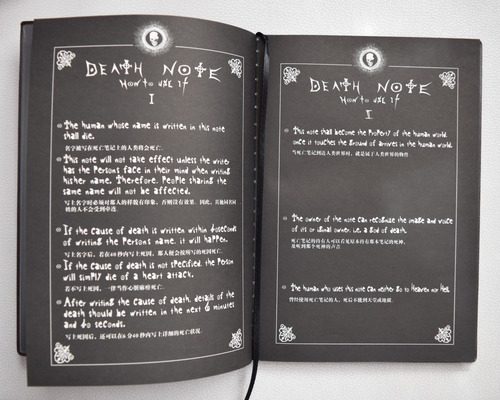 DEATH NOTE
How to use it
I
The human whose name is written in this note
shall die.
名字被写在死亡笔记上的人类将会死亡.
This note will not take effect unless the writer
has the person's face in their mind when writing
his/her name. Therefore, people sharing the
same name will not be affected.
写上名字时必须对那人的样貌有印象, 否则没有效果. 因此, 其他同名同
姓的人不会受到牵连.
If the cause of death is written within 40seconds
of writing the person's name, it will happen.
写上名字后, 若在40秒内写上死因, 那人便会按写的死因死亡.
If the cause of death is not specified, the person
will simply die of a heart attack.
若不写上死因, 一律当作心脏麻痹死亡.
After writing the cause of death, details of the
death should be written in the next 6 minutes
and 40 seconds.
写上死因后, 还可以在6分40秒内写上详细的死亡状况.
DEATH NOTE
How to use it
I
This note shall become the property of the human world,
once it touches the ground of arrives in the human world.
当死亡笔记到达人类世界时, 就是属于人类世界的物件
The owner of the note can recognise the image and voice
of its original owner, i.e. a god of death.
死亡笔记的持有人可以看见原本持有那本笔记的死神,
及听到那个死神的声音
The human who uses this note can neither go to Heaven nor Hell.
曾经使用死亡笔记的人, 死后不能到天堂或地狱.